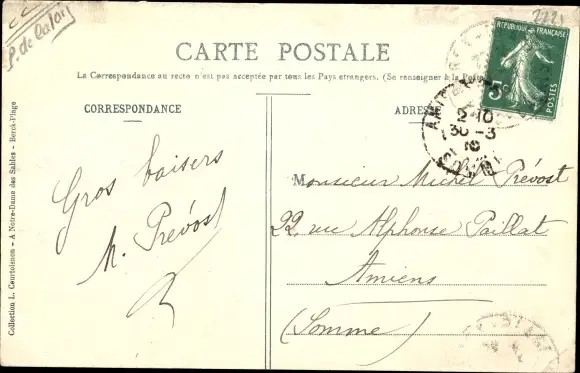 P. de Calais
2221
CARTE POSTALE
La Correspondance au recto n'est pas acceptée par tous les Pays étrangers. (Se renseigner à la Poste)
CORRESPONDANCE
ADRES
REPUBLIQUE FRANÇAISE
5c
POSTES
2-10
30-3
10
Gros baisers
M. Prévost
Monsieur Michel Prévost
22, rue Alphonse Paillat
Amiens
(Somme)
Collection L. Courtoisnon - A Notre-Dame des Sables - Berck-Plage